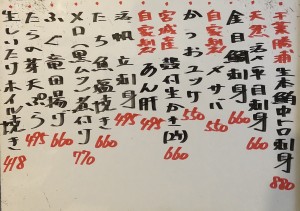 千葉勝浦 生本鮪中トロ刺身 880
天然 活〆平目刺身
金目鯛刺身 660
自家製 〆サバ 550
かつおユッケ 550
宮城産 殻付生かき(2ケ) 660
自家製 あん肝 495
活帆立刺身 495
たち魚塩焼き 660
メロ(黒ムツ)煮付け 770
ふぐ竜田揚げ 660
たらの芽天ぷら 495
生しいたけホイル焼き 418